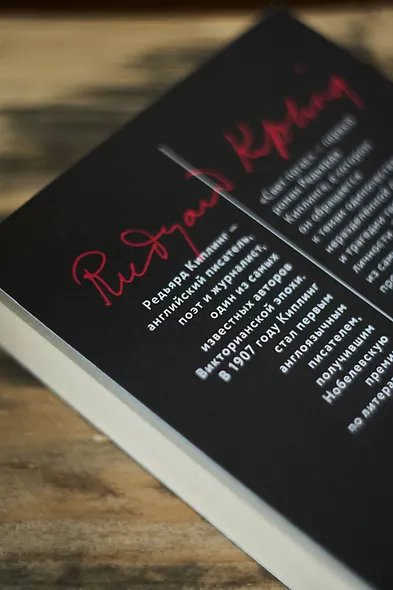 Rudyard Kipling
Редьярд Киплинг –
английский писатель,
поэт и журналист,
один из самых
известных авторов
Викторианской эпохи.
В 1907 году Киплинг
стал первым
англоязычным
писателем,
получившим
Нобелевскую
преми
по литерат
«Свет погас» – первый
роман Редьярда
Киплинга, в котором
он обращается
к темам одиночества,
неразделенной
и трагедии
личности
из са
про